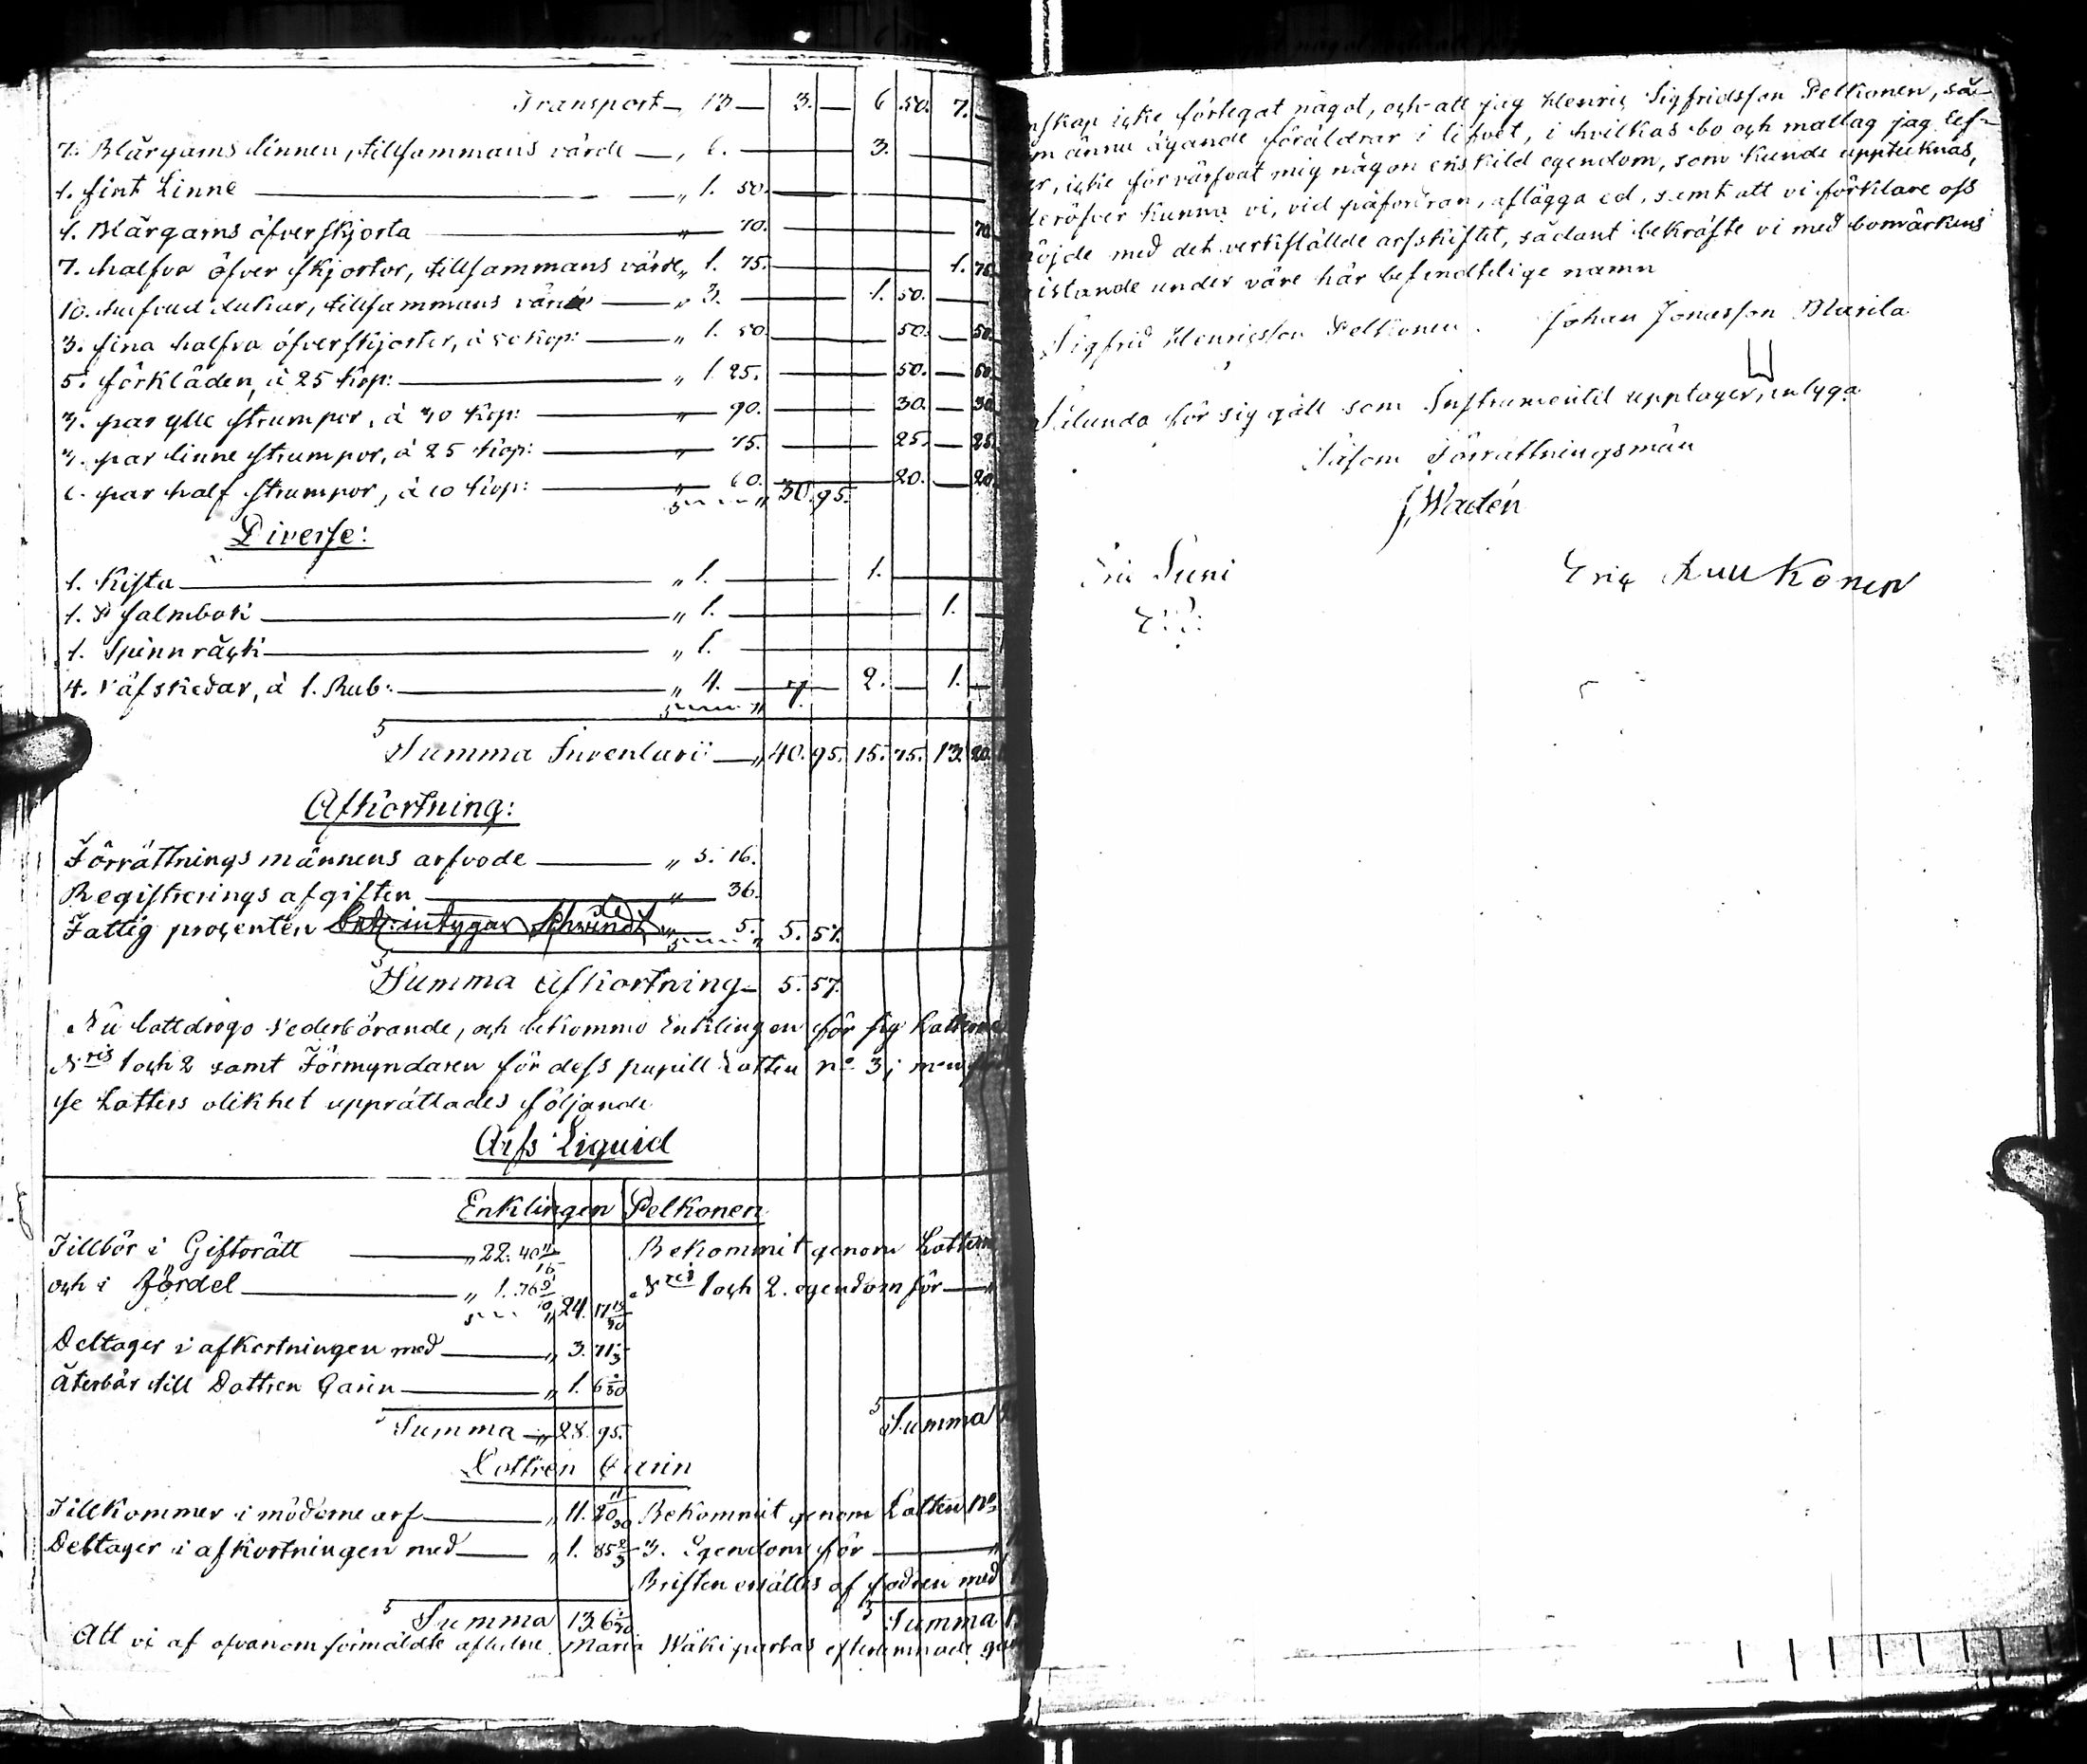 Transport 13 3. 6 50. 7.
7. Blårgarns linnen, tillsammans värde „ 6. 3.
1. fint Linne „ 1. 50.
1. Blårgarns öfverskjorta „ 70. 70
7. halfva öfver skjortor, tillsammans värde „ 1. 75. 1. 75
10. hufvud dukar, tillsammans värde „ 3. 1. 50.
3. fina halfva öfverskjortor, à 50 kop: „ 1. 50. 50. 50
5. förkläden, à 25 kop: „ 1. 25. 50.
3. par ylle strumpor, à 30 kop: „ 90. 30. 30
3. par linne strumpor, à 25 kop: „ 75. 25. 25
6. par half strumpor, à 10 kop: „ 60. 20. 20
„ 30. 95.
Diverse:
1. Kista „ 1. 1.
1. Psalmbok „ 1. 1.
1. Spinnråck „ 1.
4. Väfskedar, à 1. Rub: „ 4. 7. 2. 1.
„ 7.
Summa Inventarii „ 40. 95. 15. 75. 13. 20.
Afkortning:
Förrättningsmännens arfvode „ 5. 16.
Registreringsafgiften „ 36.
Fattig proçenten „ 5. 5. 57.
Summa Afkortning 5. 57.
Nu lottdrogo Vederbörande, och bekommo Enklingen för sig Lotterne
N:ris 1 och 2 samt Förmyndaren för dess pupill Lotten n:o 3;
se Lotters olikhet upprättades följande
Arfs Liquid
Enklingen Pelkonen
Tillbör i Giftorätt „ 22. 40 11/15 Bekommit genom Lotterne
och i Fördel „ 1. 76 9/10 N:ris 1 och 2. egendom för „
„ 24. 17 19/30
Deltager i afkortningen med „ 3. 71 1/3
Återbär till Dottren Carin „ 1. 6 1/30
Summa „ 28. 95. Summa
Dottren Carin
Tillkommer i möderne arf „ 11. 20 11/30 Bekommit genom Lotten N:o
Deltager i afkortningen med „ 1. 85 2/3 3. Egendom för „
Bristen ersättes af fadren med
Summa 13. 6 1/30 Summa
Att vi af ofvanom förmäldte aflidne Maria Wäkipartas efterlämnade
nskap icke förtegat något, och att jag Henric Sigfridsson Pelkonen, så
m ännu ägande föräldrar i lifvet, i hvilkas bo och matlag jag lef-
er, icke förvärfvat mig någon enskild egendom, som kunde upptecknas,
deröfver kunna vi, vid påfordran, aflägga ed, samt att vi förklare oss
nöjde med det verkställde arfskiftet, sådant bekräfte vi med bomärkens
istande under våre här befindtelige namn
Sigfrid Henricsson Pelkonen. Johan Jonasson Marila
Sålunda för sig gått som Instrumentet upptager, intyga
Såsom Förrättningsmän
J. Wadén
Suni Eric Luukonen